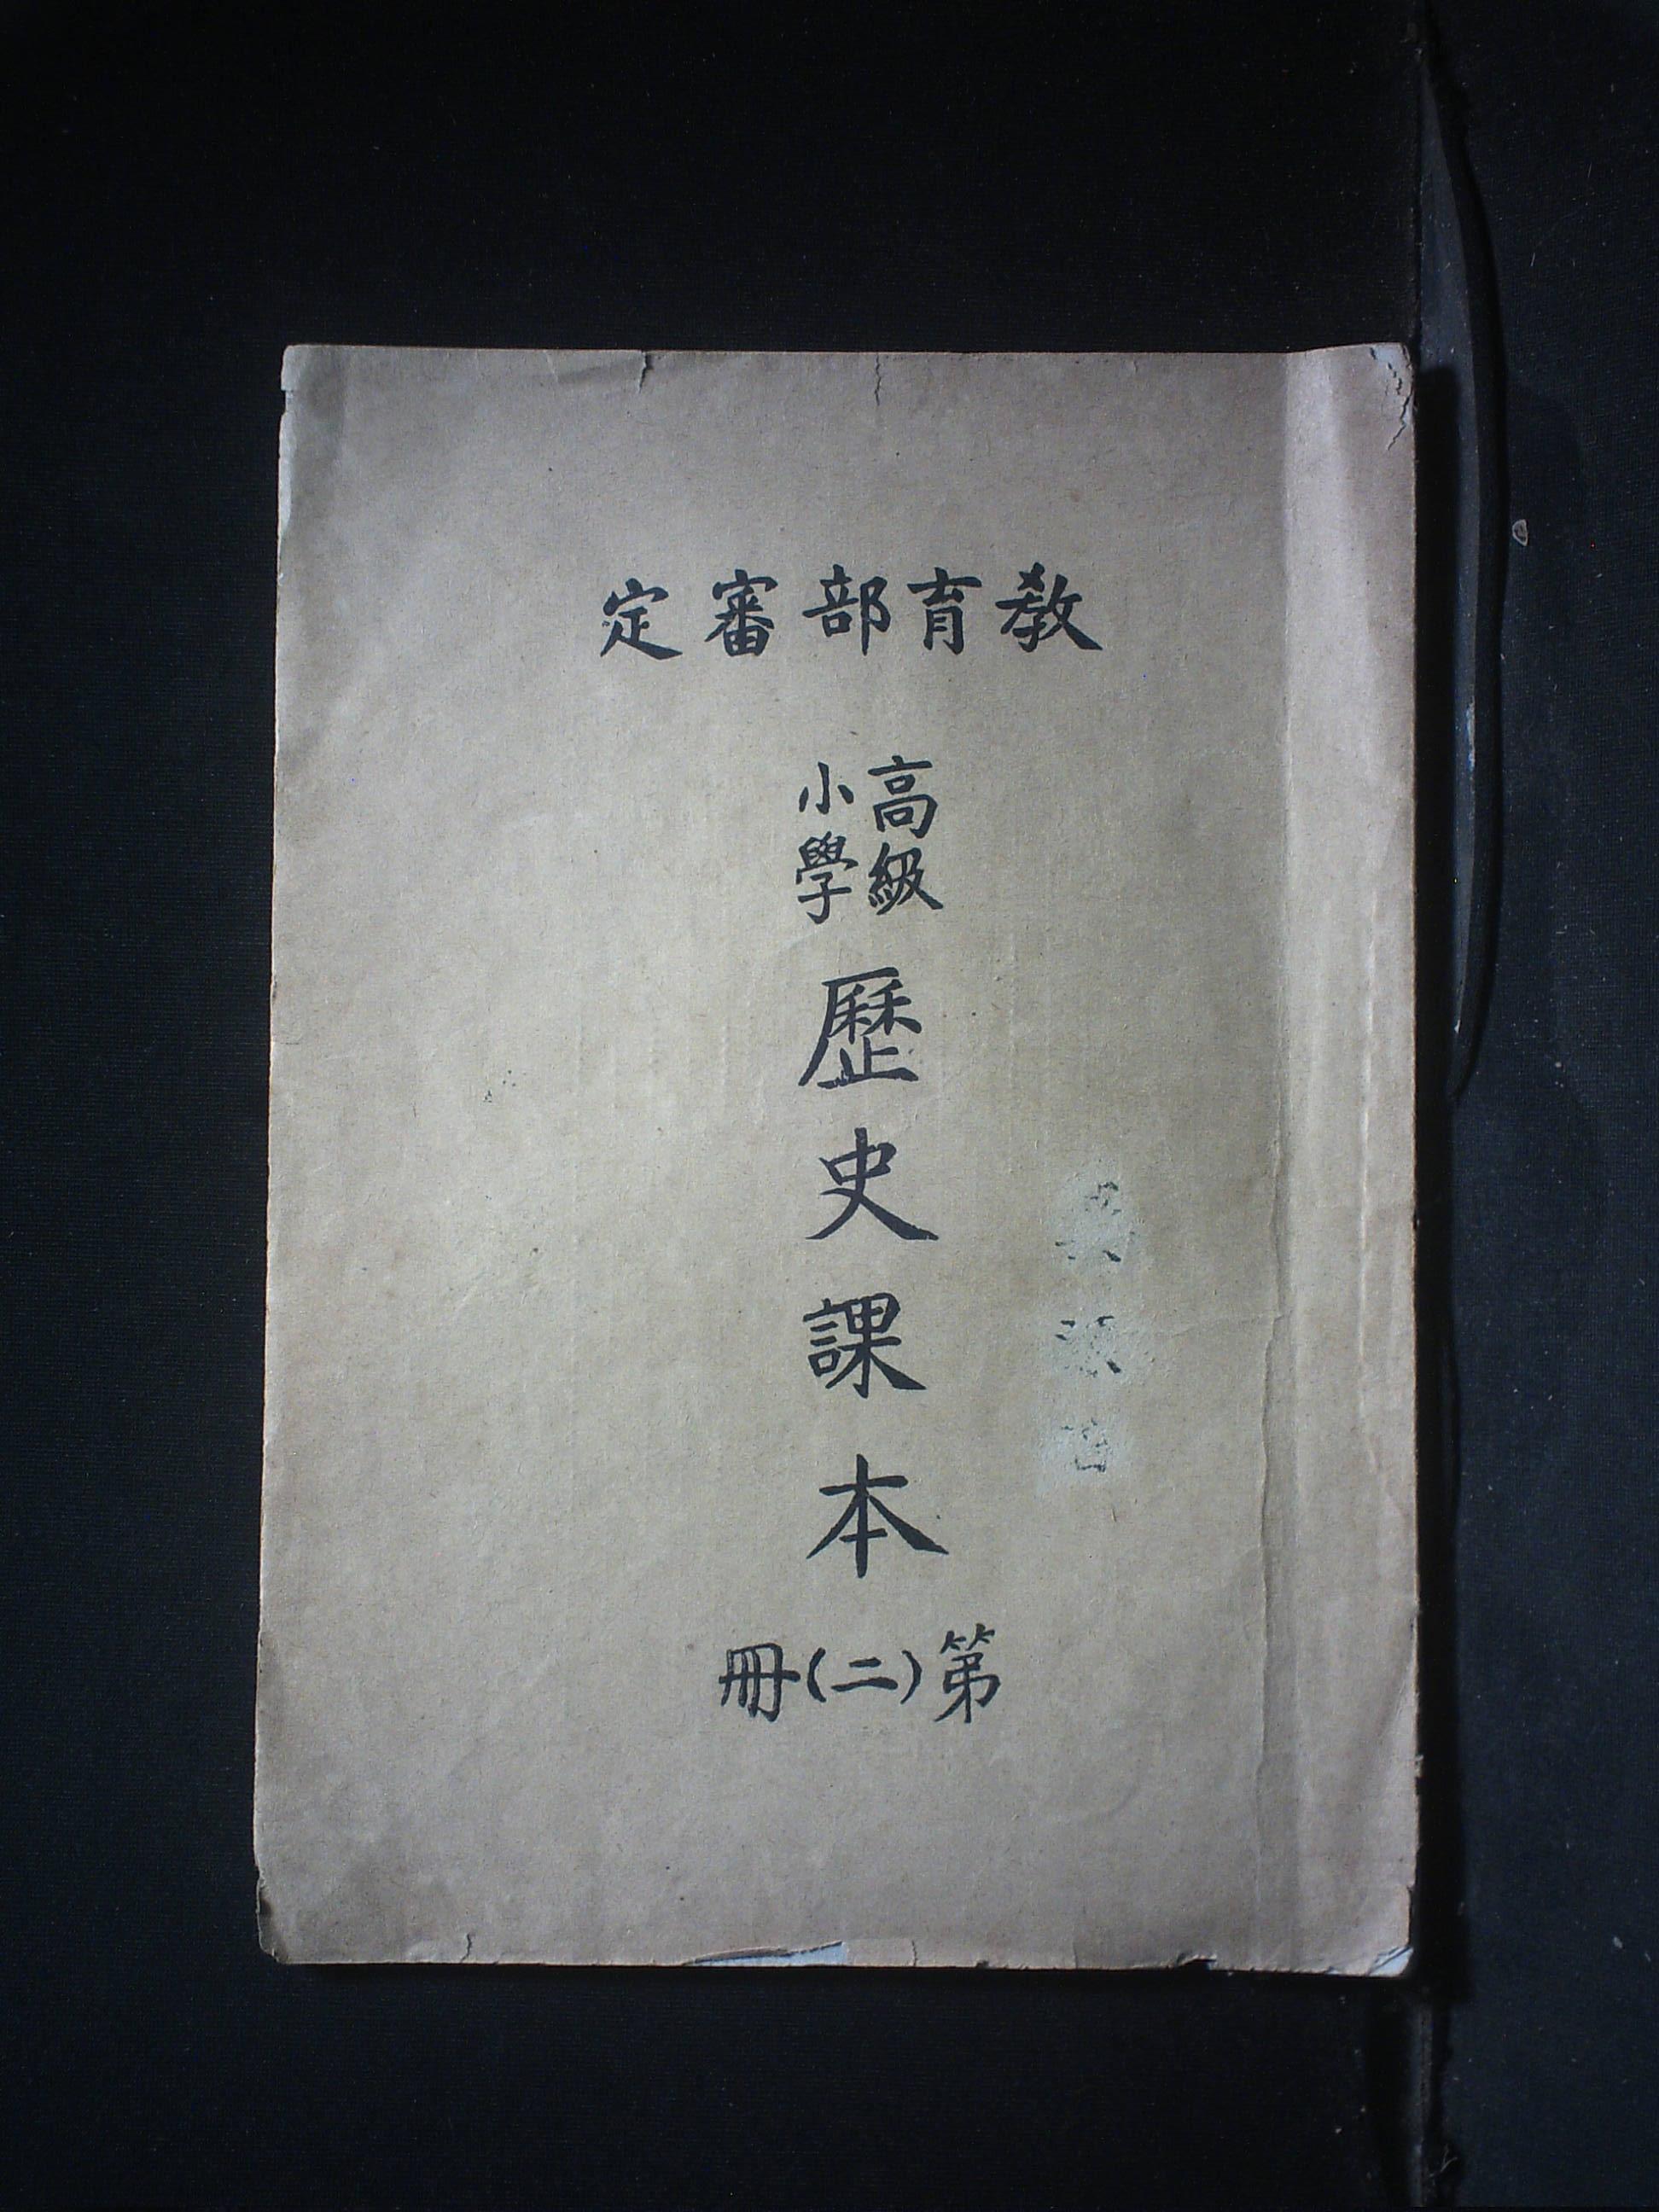 教育部審定
高級
小學
歷史課本
第(二)冊